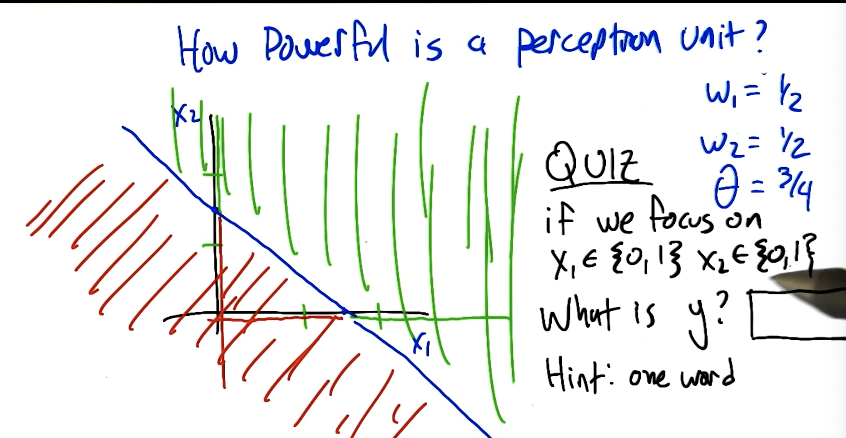 How Powerful is a perceptron unit?
w₁ = 1/2
w₂ = 1/2
θ = 3/4
x₂
x₁
QUIZ
if we focus on
x₁ ∈ {0,1} x₂ ∈ {0,1}
What is y?
Hint: one word